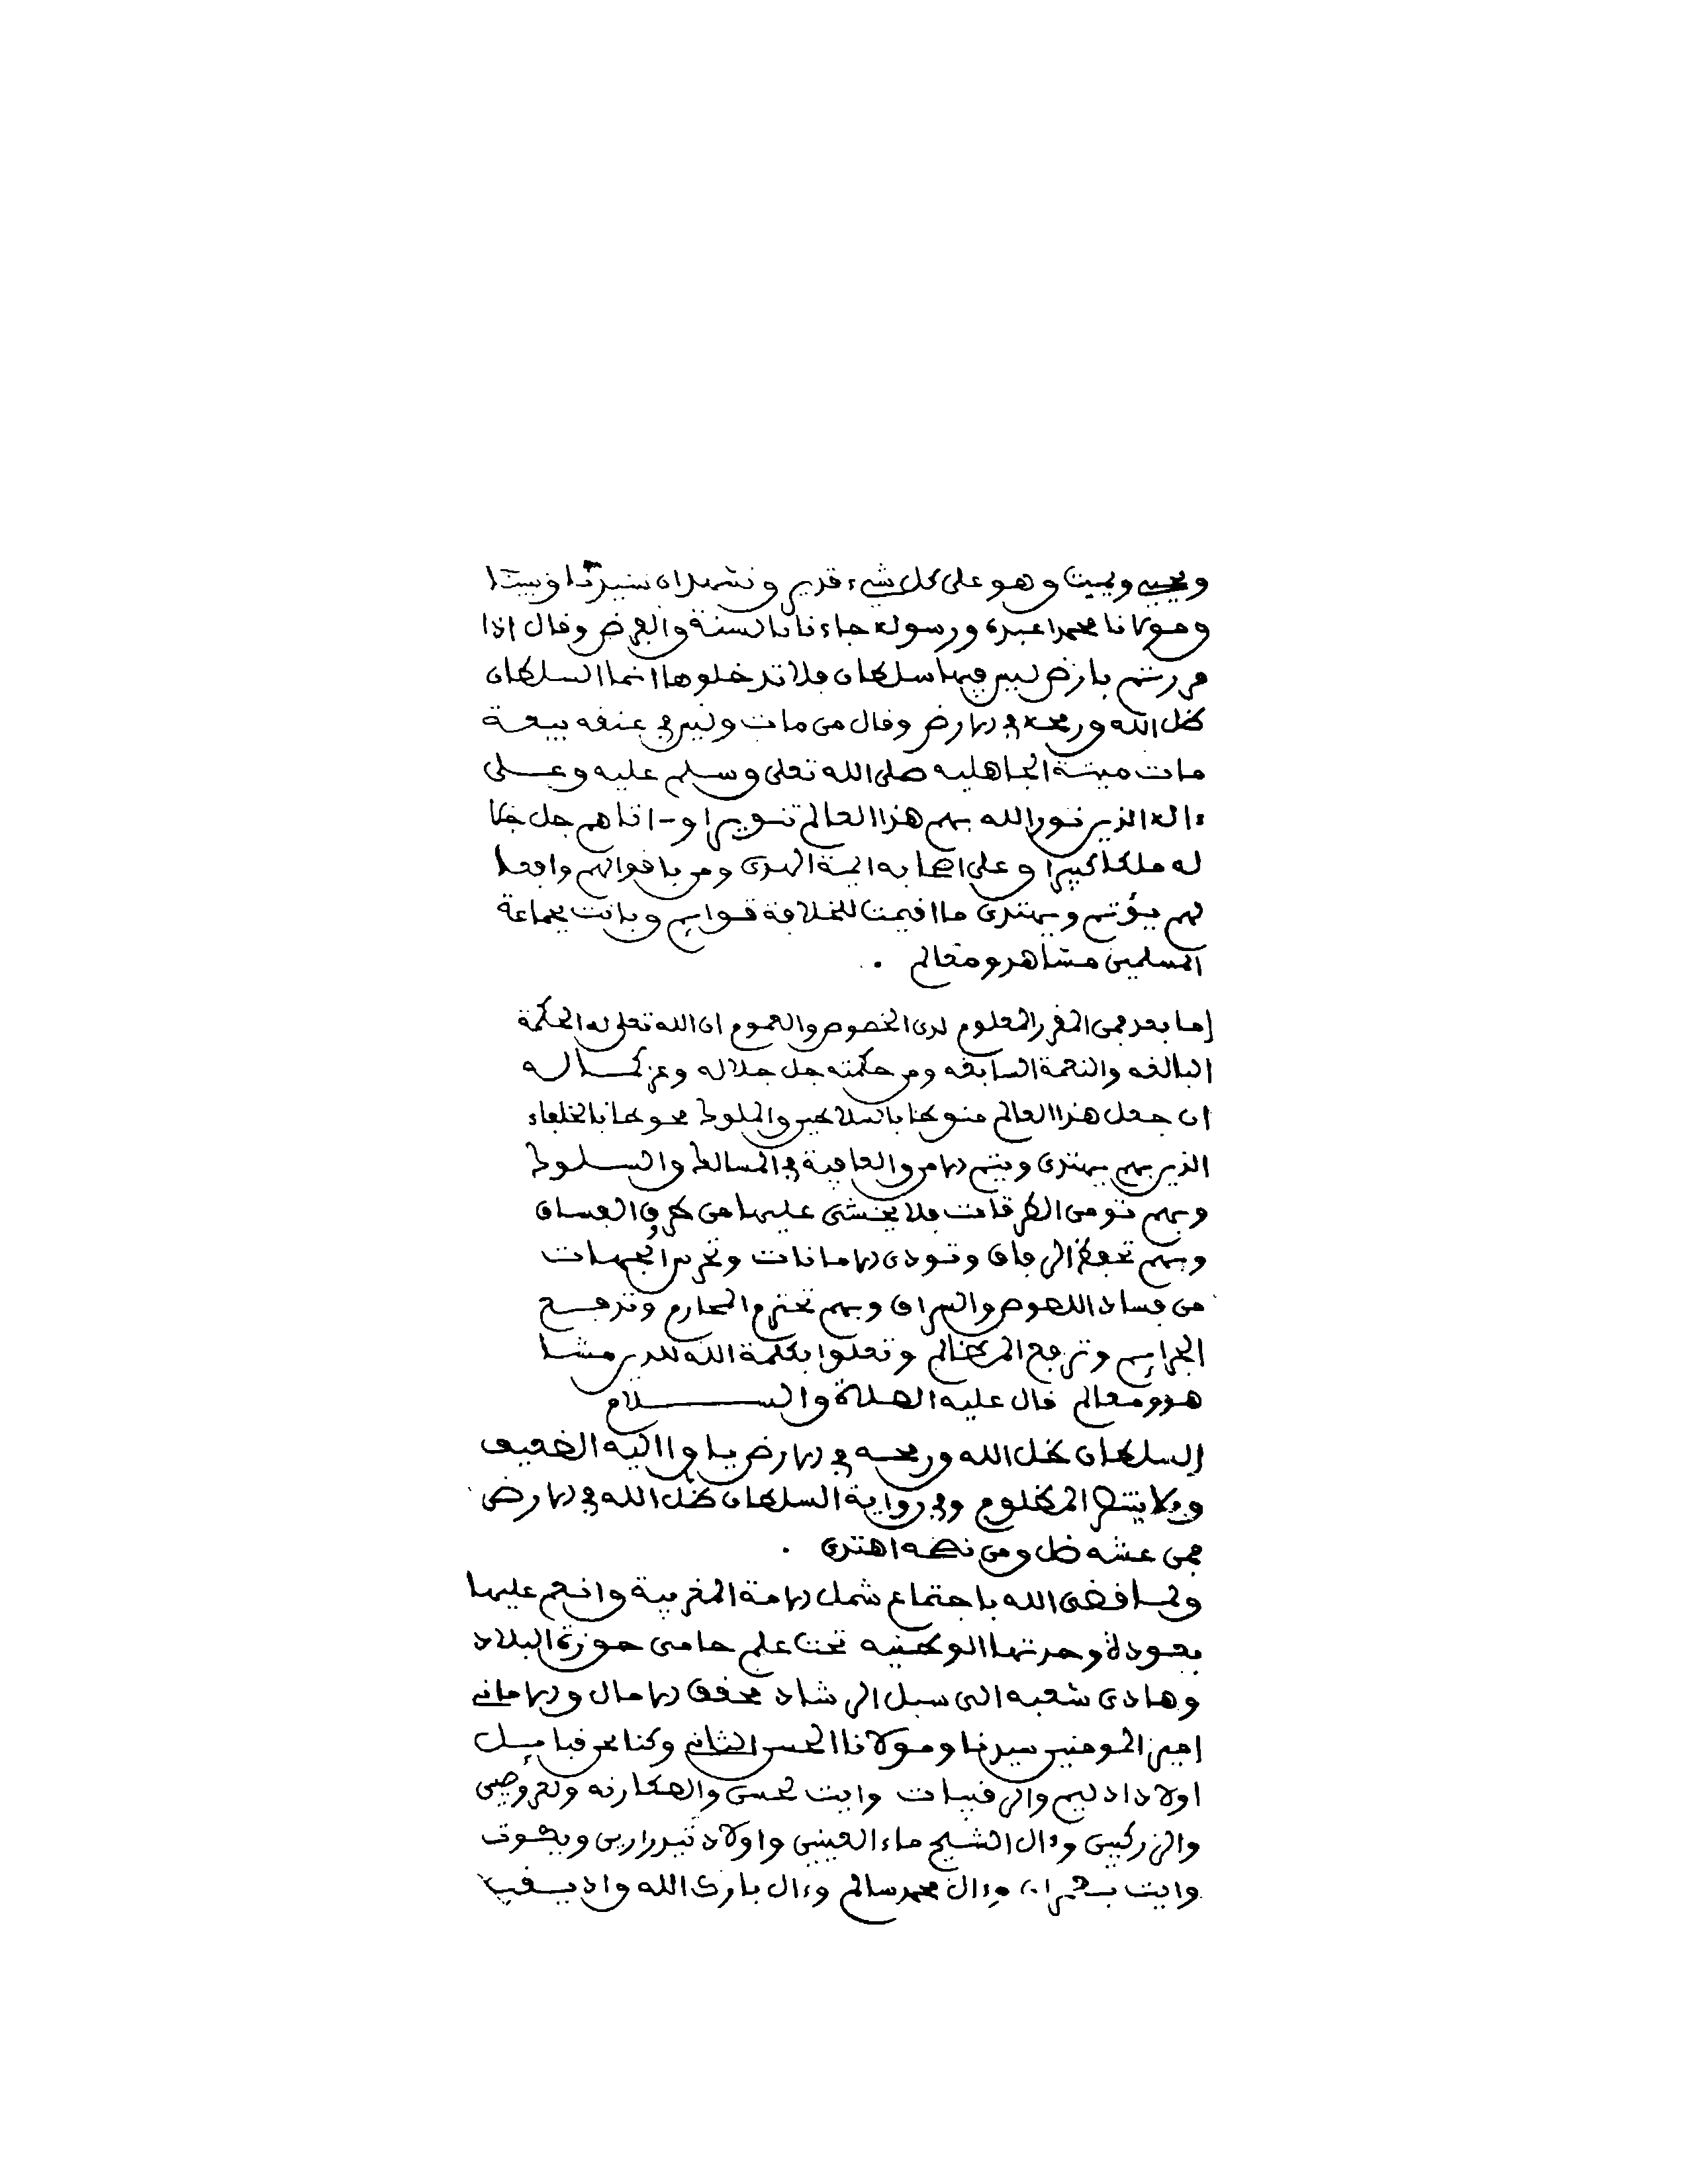 ويحيي ويميت وهو على كل شيء قدير ونشهد ان سيدنا ونبينا
ومولانا محمدا عبده ورسوله جاءنا بالسنة والفرض وقال اذا
مررتم بارض ليس فيها سلطان فلا تدخلوها انما السلطان
ظل الله ورمحه في الارض وقال من مات وليس في عنقه بيعة
مات ميتة الجاهليه صلى الله تعلى وسلم عليه وعلى
ءاله الذين نور الله بهم هذا العالم تنويرا و-اتاهم جل جلا
له ملكا كبيرا وعلى اصحابه ايمة الهدى ومن باقوالهم وافعا
لهم يؤتم ويهتدى ما اقيمت للخلافة قوايم وبانت لجماعة
المسلمين مشاهد ومعالم .
اما بعد فمن المقرر المعلوم لدى الخصوص والعموم ان الله تعلى له الحكمة
البالغه والنعمة السابغه ومن حكمته جل جلاله وعز كماله
ان جعل هذا العالم منوطا بالسلاطين والملوك محوطا بالخلفاء
الذين بهم يهتدى ويتم الامن والعافية في المسالك والسلوك
وبهم تومن الطرقات فلا يخشى عليها من طروق الفساق
وبهم تحفظ الرفاق وتودى الامانات وتحرس الجهات
من فساد اللصوص والسراق وبهم تحترم المحارم وتردع
الجرايم وترفع المظالم وتعلوا بكلمة الله للدين مشا
هد ومعالم قال عليه الصلاة والسلام
السلطان ظل الله ورمحه في الارض ياوا اليه الضعيف
وبه ينتصر المظلوم وفي رواية السلطان ظل الله في الارض
فمن غشه ضل ومن نصحه اهتدى .
ولما قضى الله باجتماع شمل الامة المغربية وانعم عليها
بعودة وحدتها الوطنيه تحت علم حامى حوزة البلاد
وهادى شعبه الى سبل الرشاد محقق الامال والاماني
امير المومنين سيدنا ومولانا الحسن الثاني وكنا نحن قبايل
اولاد ادليم والرقيبات وايت لحسن والعكارنه ولعروصيى
والزركيين وءال الشيخ ماء العينين واولاد تيدرارين ويكوت
وايت بعمران وءال محمد سالم وءال بارك الله واد يعقب